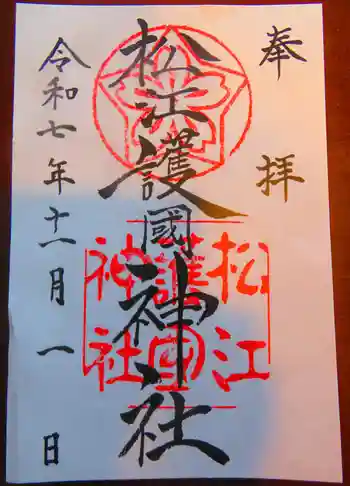 奉拝
松江護國神社
松江
護国
神社
令和七年十一月一日